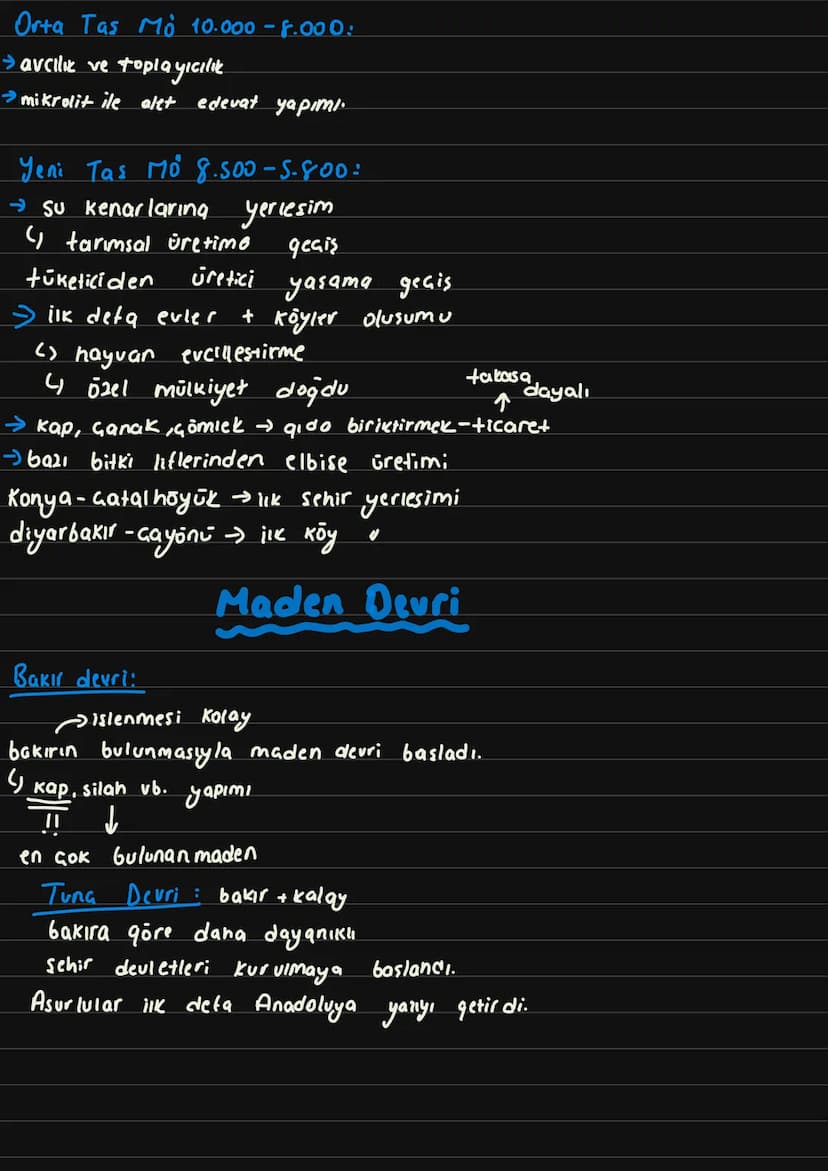 Orta Tas MÖ 10.000 - 8.000:
→ avcılık ve toplayıcılık
→ mikrolit ile alet edevat yapımı.
Yeni Tas MÖ 8.500 - 5.800:
→ su kenarlarına yerlesim
↳ tarımsal üretime gecis
tüketiciden üretici yasama gecis
⇒ ilk defa evler + köyler olusumu
↳ hayvan evcillestirme
↳ özel mülkiyet doğdu
takasa dayalı
↑
→ kap, canak, cömlek → gıda biriktirmek - ticaret
→ bazı bitki liflerinden elbise üretimi
Konya - Catalhöyük → ilk sehir yerlesimi
diyarbakır - cayönü → ilk köy "
Maden Devri
Bakır devri:
→ islenmesi kolay
bakırın bulunmasıyla maden devri basladı.
↳ kap, silah vb. yapımı
!! ↓
en cok bulunan maden
Tunc Devri: bakır + kalay
bakıra göre daha dayanıklı
sehir devletleri kurulmaya baslandı.
Asurlular ilk defa Anadoluya yazıyı getirdi.